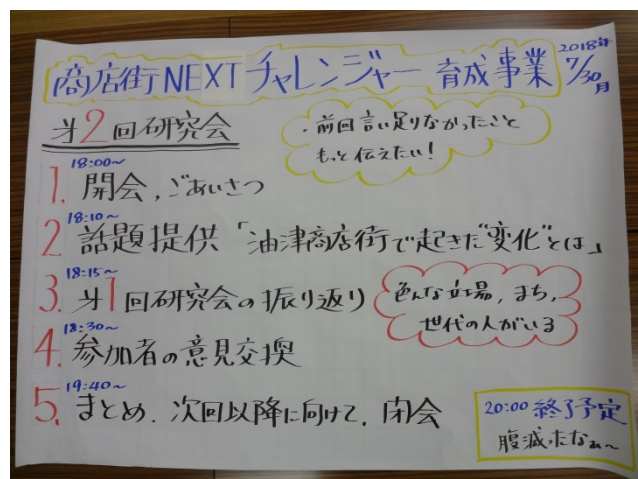 商店街NEXTチャレンジャー 育成事業
2018年
7/30月
第2回研究会
・前回言い足りなかったこと
もっと伝えたい!
18:00~
1. 開会,ごあいさつ
18:10~
2. 話題提供「油津商店街で起きた"変化"とは」
18:15~
3. 第1回研究会の振り返り
色んな立場,まち,
世代の人がいる
18:30~
4. 参加者の意見交換
19:40~
5. まとめ.次回以降に向けて.閉会
20:00 終了予定
腹減ったなぁ~